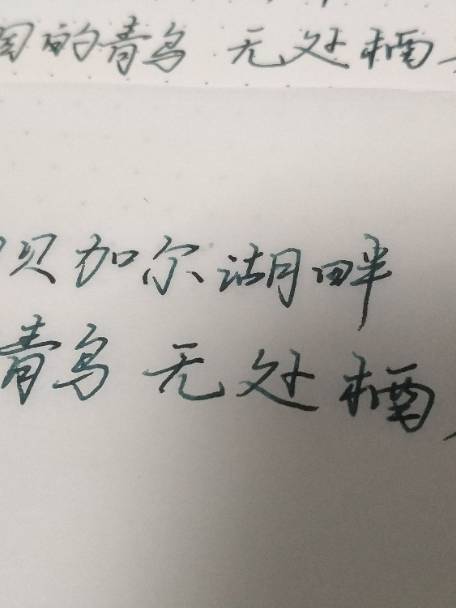 的青鸟 无处栖
贝加尔湖畔
青鸟 无处栖